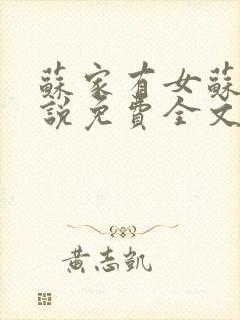 蘇家有女蘇
說免費全文
黃志凱